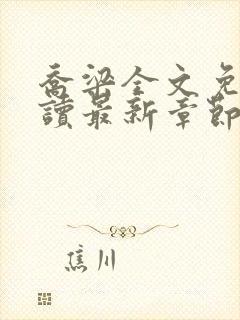 喬梁全文免
讀最新章節
焦川